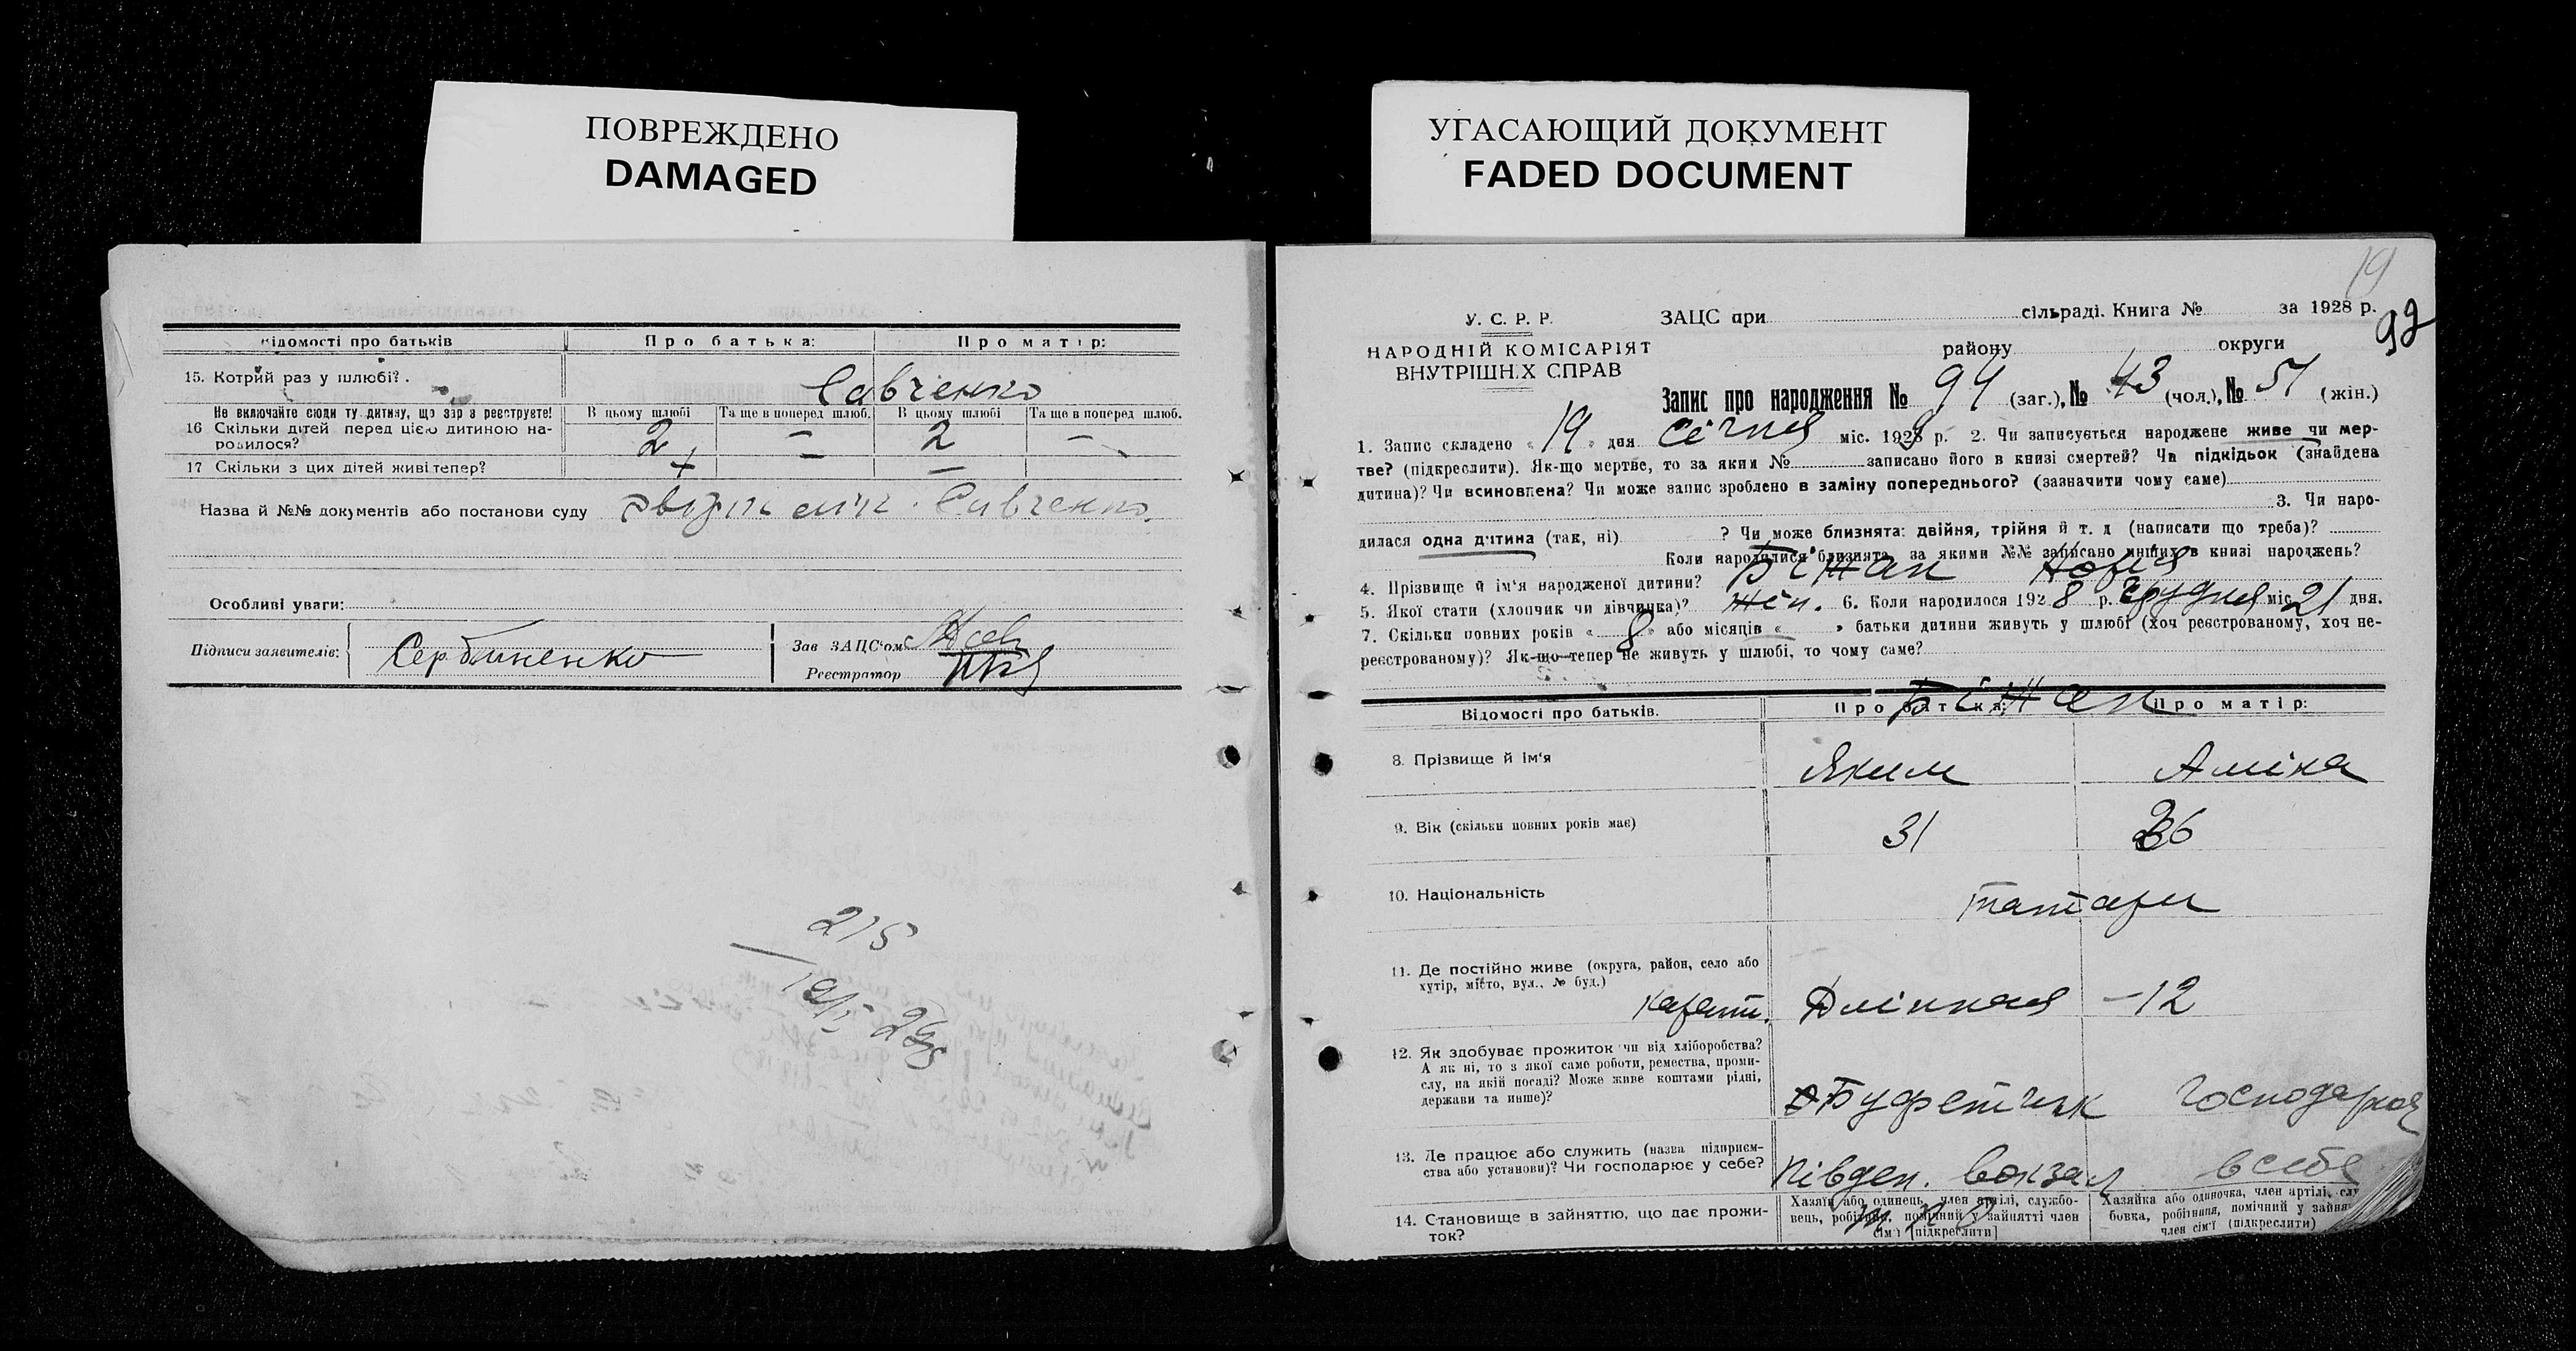 ПОВРЕЖДЕНО
DAMAGED
Відомості про батьків
Про батька:
Про матір:
15. Котрий раз у шлюбі?
Савченко
Не включайте сюди ту дитину, що зараз реєструєте!
В цьому шлюбі
Та ще в поперед шлюб.
В цьому шлюбі
Та ще в поперед шлюб.
16 Скільки дітей перед цією дитиною на-
родилося?
2 — 2 —
17 Скільки з цих дітей живі тепер?
Назва й №№ документів або постанови суду
Савченко
Особливі уваги:
Підписи заявителів:
Зав ЗАЦС'ом
Реєстратор
215
УГАСАЮЩИЙ ДОКУМЕНТ
FADED DOCUMENT
19
92
У. С. Р. Р.
НАРОДНІЙ КОМІСАРІЯТ
ВНУТРІШНІХ СПРАВ
ЗАЦС при сільраді. Книга № за 1928 р.
району округи
Запис про народження № 94 (заг.), № 43 (чол.), № 51 (жін.)
1. Запис складено « 19 » дня Січня міс. 1929 р. 2. Чи записується народжене живе чи мер-
тве? (підкреслити). Як-що мертве, то за яким № записано його в книзі смертей? Чи підкідьок (знайдена
дитина)? Чи всиновлена? Чи може запис зроблено в заміну попереднього? (зазначити чому саме)
3. Чи наро-
дилася одна дитина (так, ні) ? Чи може близнята: двійня, трійня й т. д (написати що треба)?
Коли народилися близнята, за якими №№ записано инших в книзі народжень?
4. Прізвище й ім'я народженої дитини? Біжан
5. Якої стати (хлопчик чи дівчинка)? жін. 6. Коли народилося 1928 р. Грудня міс 21 дня.
7. Скільки повних років « 8 » або місяців « » батьки дитини живуть у шлюбі (хоч реєстрованому, хоч не-
реєстрованому)? Як-що тепер не живуть у шлюбі, то чому саме?
Відомості про батьків.
Про батька:
Про матір:
Біжан
8. Прізвище й ім'я
Яким
Аміна
9. Вік (скільки повних років має)
31
26
10. Національність
татари
11. Де постійно живе (округа, район, село або
хутір, місто, вул., № буд.)
Длінная —12
12. Як здобуває прожиток чи від хліборобства?
А як ні, то з якої саме роботи, ремества, проми-
слу, на якій посаді? Може живе коштами рідні,
держави та инше)?
Буфетчик
13. Де працює або служить (назва підприєм-
ства або установи)? Чи господарює у себе?
Півден. вокзал
в себе
14. Становище в зайняттю, що дає прожи-
ток?
Хазяїн або одинець, член артілі, службо-
вець, робітник, помічний у зайнятті член
сім'ї [підкреслити]
Хазяйка або одиночка, член артілі, слу
бовка, робітниця, помічний у зайня
член сім'ї (підкреслити)